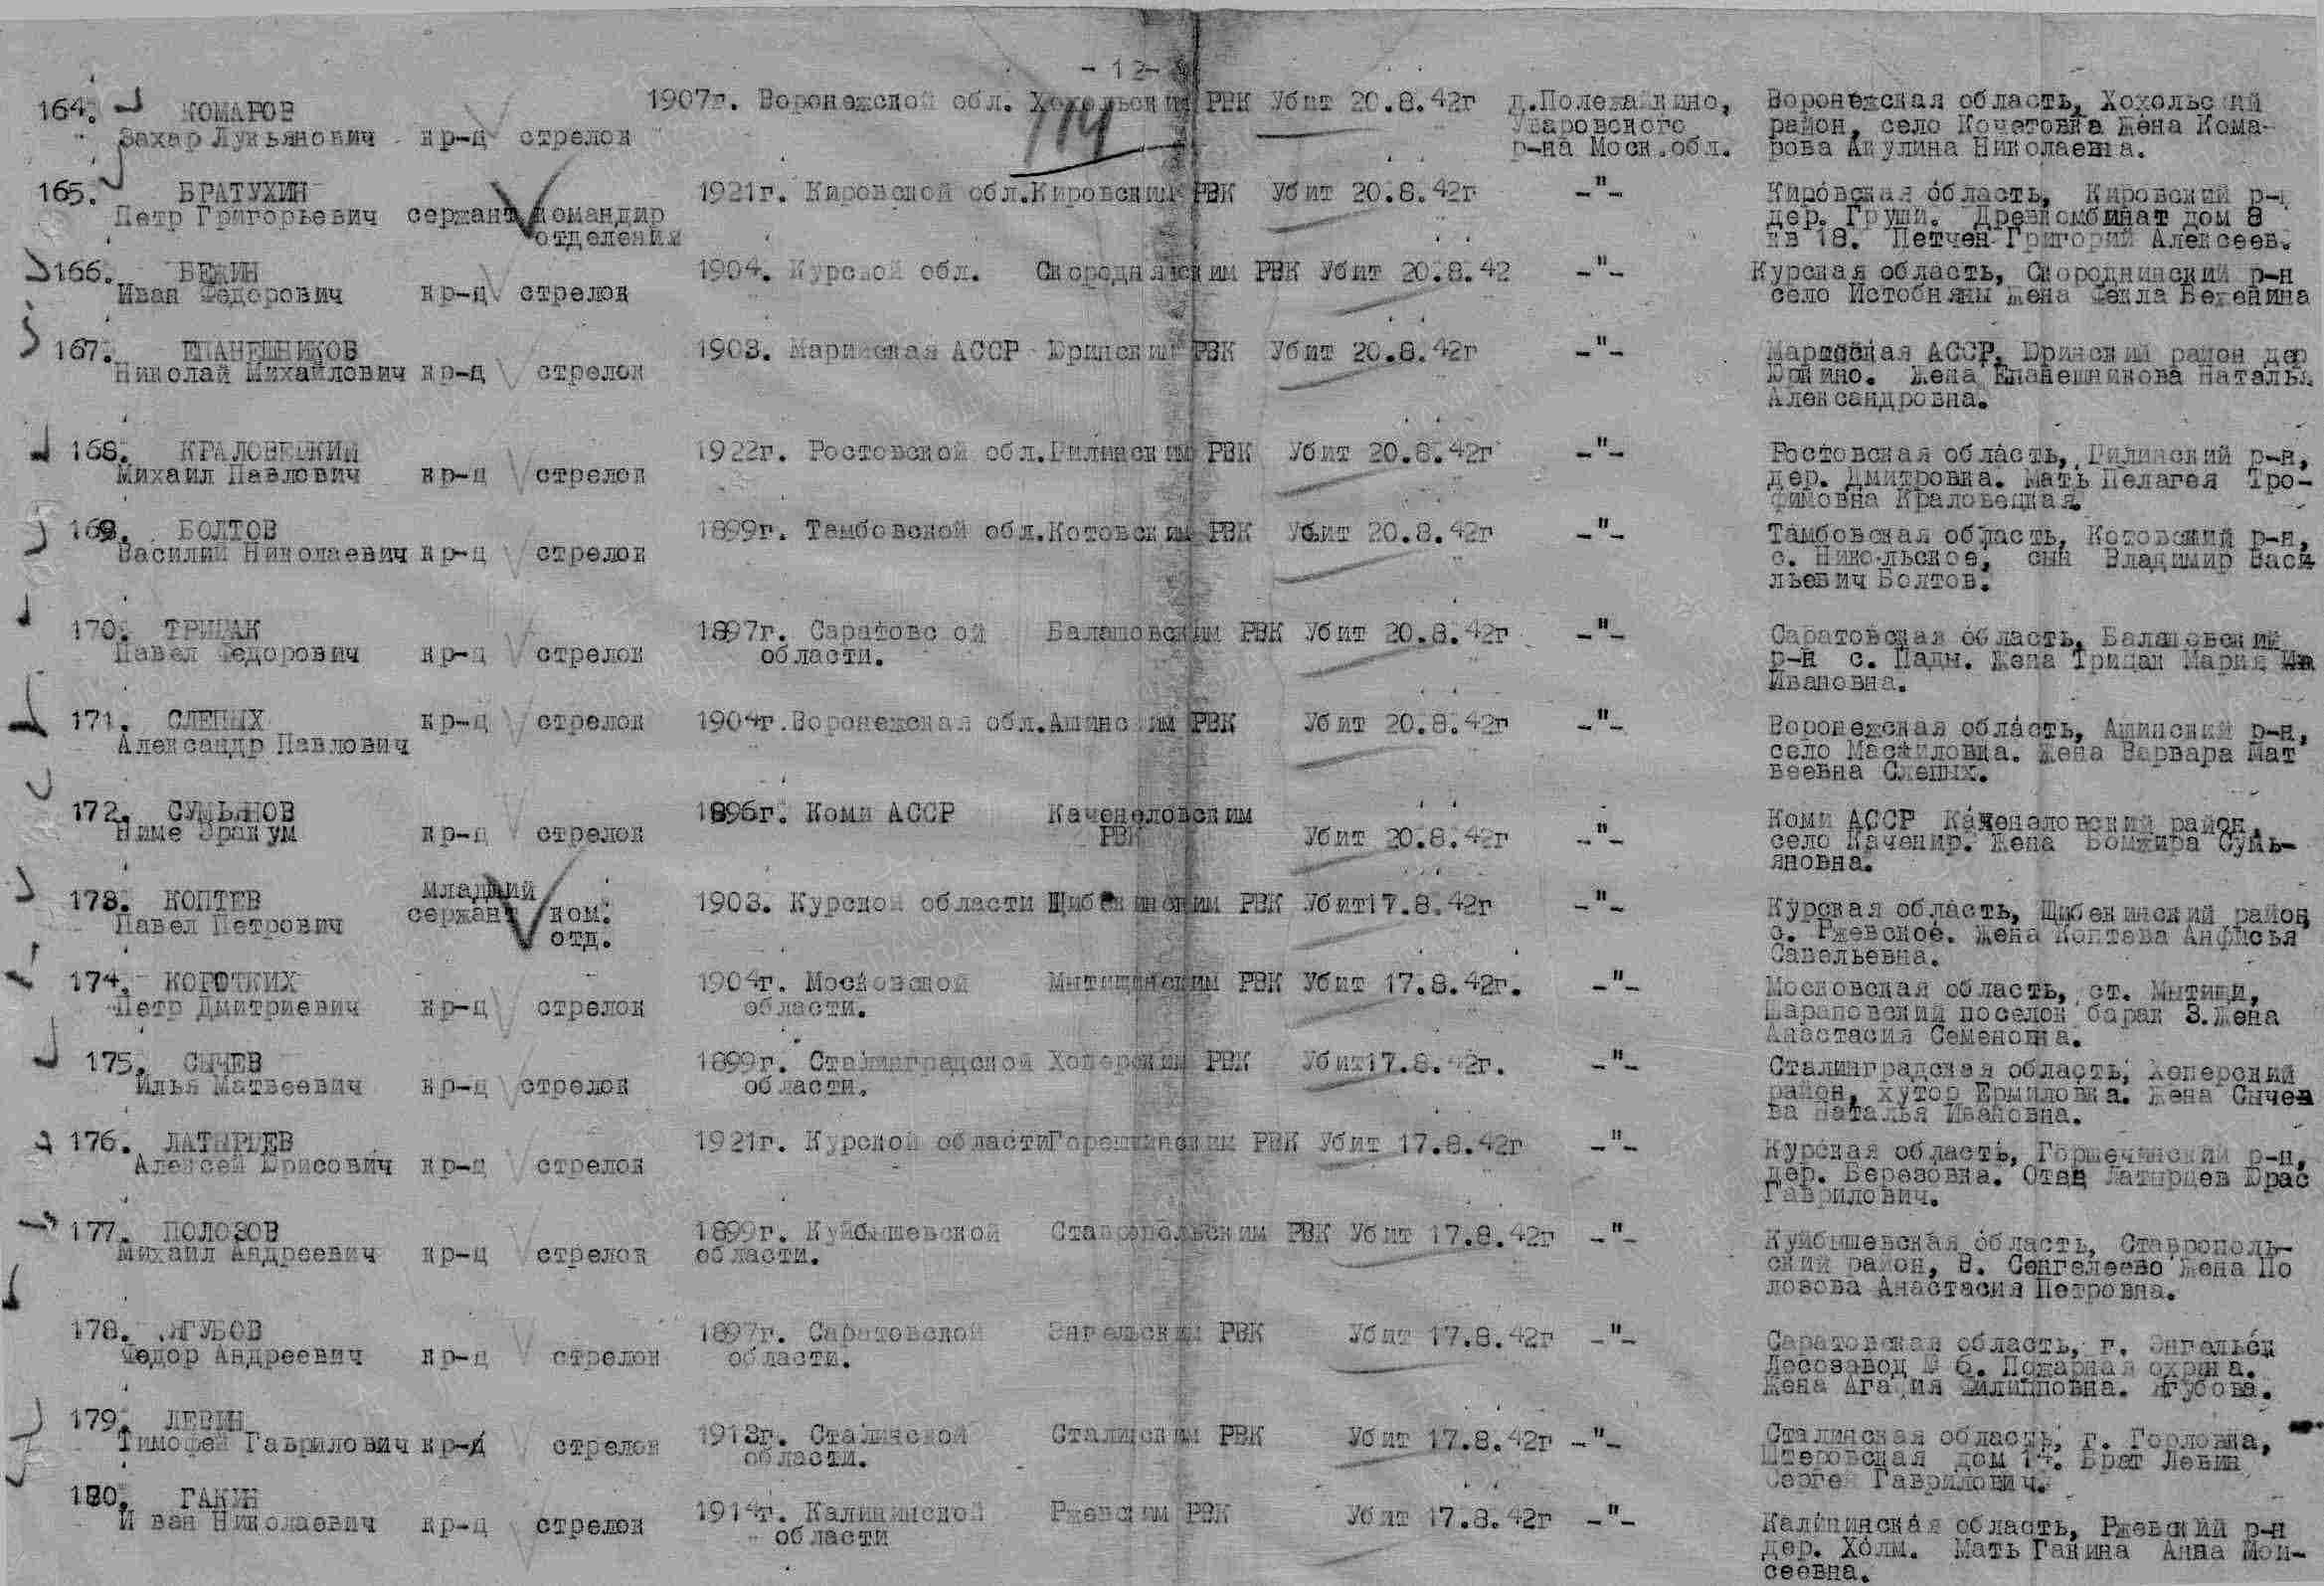 - 12-
114
164. КОМАРОВ 1907г. Воронежской обл. Хохольским РВК Убит 20.8.42г д.Полежайкино, Воронежская область, Хохольский
Захар Лукьянович кр-ц стрелок Уваровского район, село Кочетовка Жена Кома-
р-на Моск.обл. рова Акулина Николаевна.
165. БРАТУХИН 1921г. Кировской обл.Кировским РВК Убит 20.8.42г -"- Кировская область, Кировский р-н
Петр Григорьевич сержант командир дер. Груши. Древкомбинат дом 8
отделения кв 18. Петчен Григорий Алексеев.
166. БЕЖИН 1904. Курской обл. Скороднянским РВК Убит 20.8.42 -"- Курская область, Скороднинский р-н
Иван Федорович кр-ц стрелок село Истобняны Жена Фекла
167. ЕПАНЕШНИКОВ 1903. Марийская АССР Юринским РВК Убит 20.8.42г -"- Марийская АССР, Юринский район дер
Николай Михайлович кр-ц стрелок Юркино. Жена Епанешникова Наталья
Александровна.
168. КРАЛОВЕЦКИЙ 1922г. Ростовской обл. РВК Убит 20.8.42г -"- Ростовская область, р-н,
Михаил Павлович кр-ц стрелок дер. Дмитровка. Мать Пелагея Тро-
фимовна Краловецкая.
169. БОЛТОВ 1899г. Тамбовской обл.Котовским РВК Убит 20.8.42г -"- Тамбовская область, Котовский р-н,
Василий Николаевич кр-ц стрелок с. Никольское, сын Владимир Васи
льевич Болтов.
170. ТРИПАК 1897г. Саратовс ой Балашовским РВК Убит 20.8.42г -"- Саратовская область, Балашовский
Павел Федорович кр-ц стрелок области. р-н с. Пады. Жена Трипак Мария Ив
Ивановна.
171. СЛЕПЫХ кр-ц стрелок 1904г.Воронежская обл.Аминс им РВК Убит 20.8.42г -"- Воронежская область, р-н,
Александр Павлович село Жена Варвара Мат
веевна Слепых.
172. СУМЬЯНОВ 1896г. Коми АССР Каченеловским Коми АССР Каченеловский район,
Ниме кр-ц стрелок РВК Убит 20.8.42г -"- село Каченир. Жена Бомжира Сумь-
яновна.
173. КОПТЕВ младший 1903. Курской области РВК Убит17.8.42г -"- Курская область, Щибекинский район
Павел Петрович сержант ком. с. Ржевское. Жена Коптева Анфисья
отд. Савельевна.
174. КОРОТКИХ 1904г. Московской Мытищинским РВК Убит 17.8.42г. -"- Московская область, ст. Мытищи,
Петр Дмитриевич кр-ц стрелок области. Шараповский поселок барак 3.Жена
Анастасия Семеновна.
175. СЫЧЕВ 1899г. Сталинградской Хоперским РВК Убит17.8.42г. -"- Сталинградская область, Хоперский
Илья Матвеевич кр-ц стрелок области. район, хутор Ермиловка. Жена Сычев
ва Наталья Ивановна.
176. ЛАТЫРЦЕВ 1921г. Курской области РВК Убит 17.8.42г -"- Курская область, Горшечинский р-н,
Алексей Юрисович кр-ц стрелок дер. Березовка. Отец Латырцев Юрас
Гаврилович.
177. ПОЛОЗОВ 1899г. Куйбышевской Ставропольским РВК Убит 17.8.42г -"- Куйбышевская область, Ставрополь-
Михаил Андреевич кр-ц стрелок области. ский район, В. Сенгелеево Жена По
лозова Анастасия Петровна.
178. ЯГУБОВ 1897г. Саратовской Энгельским РВК Убит 17.8.42г -"- Саратовская область, г. Энгельск
Федор Андреевич кр-ц стрелок области. Лесозавод № 6. Пожарная охрана.
Жена Агафия Филипповна. Ягубова.
179. ЛЕВИН 1913г. Сталинской Сталинским РВК Убит 17.8.42г -"- Сталинская область, г. Горловка,
Тимофей Гаврилович кр-ц стрелок области. дом 14. Брат Левин
Сергей Гаврилович.
180. ГАКИН 1914г. Калининской Ржевским РВК Убит 17.8.42г -"- Калининская область, Ржевский р-н
Иван Николаевич кр-ц стрелок области дер. Холм. Мать Гакина Анна Мои-
сеевна.